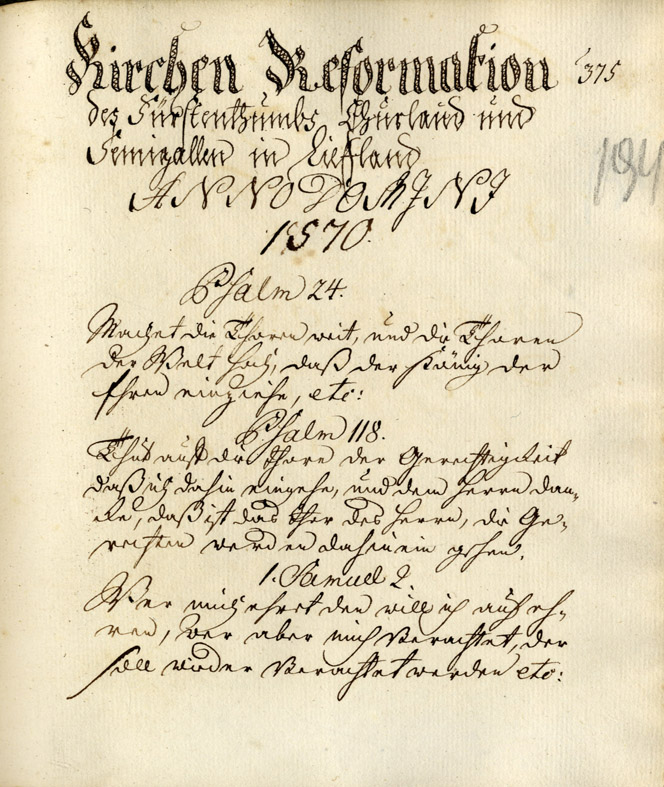 Kirchen Reformation 375
des Fürstenthumbs Churland und
Semigallen in Liefland
194
ANNO DOMINI
1570.
Psalm 24.
Machet die Thoren weit, und die Thoren
der Welt hoch, daß der König der
Ehren einziehe, etc:
Psalm 118.
Thut auff die Thore der Gerechtigkeit
daß ich dahin eingehe, und dem Herrn dan-
ke, daß ist das Thor des Herrn, die Ge-
rechten werden dahinein gehen.
1. Samuel 2.
Wer mich ehret den will ich auch eh-
ren, wer aber mich verachtet, der
soll wieder verachtet werden etc: